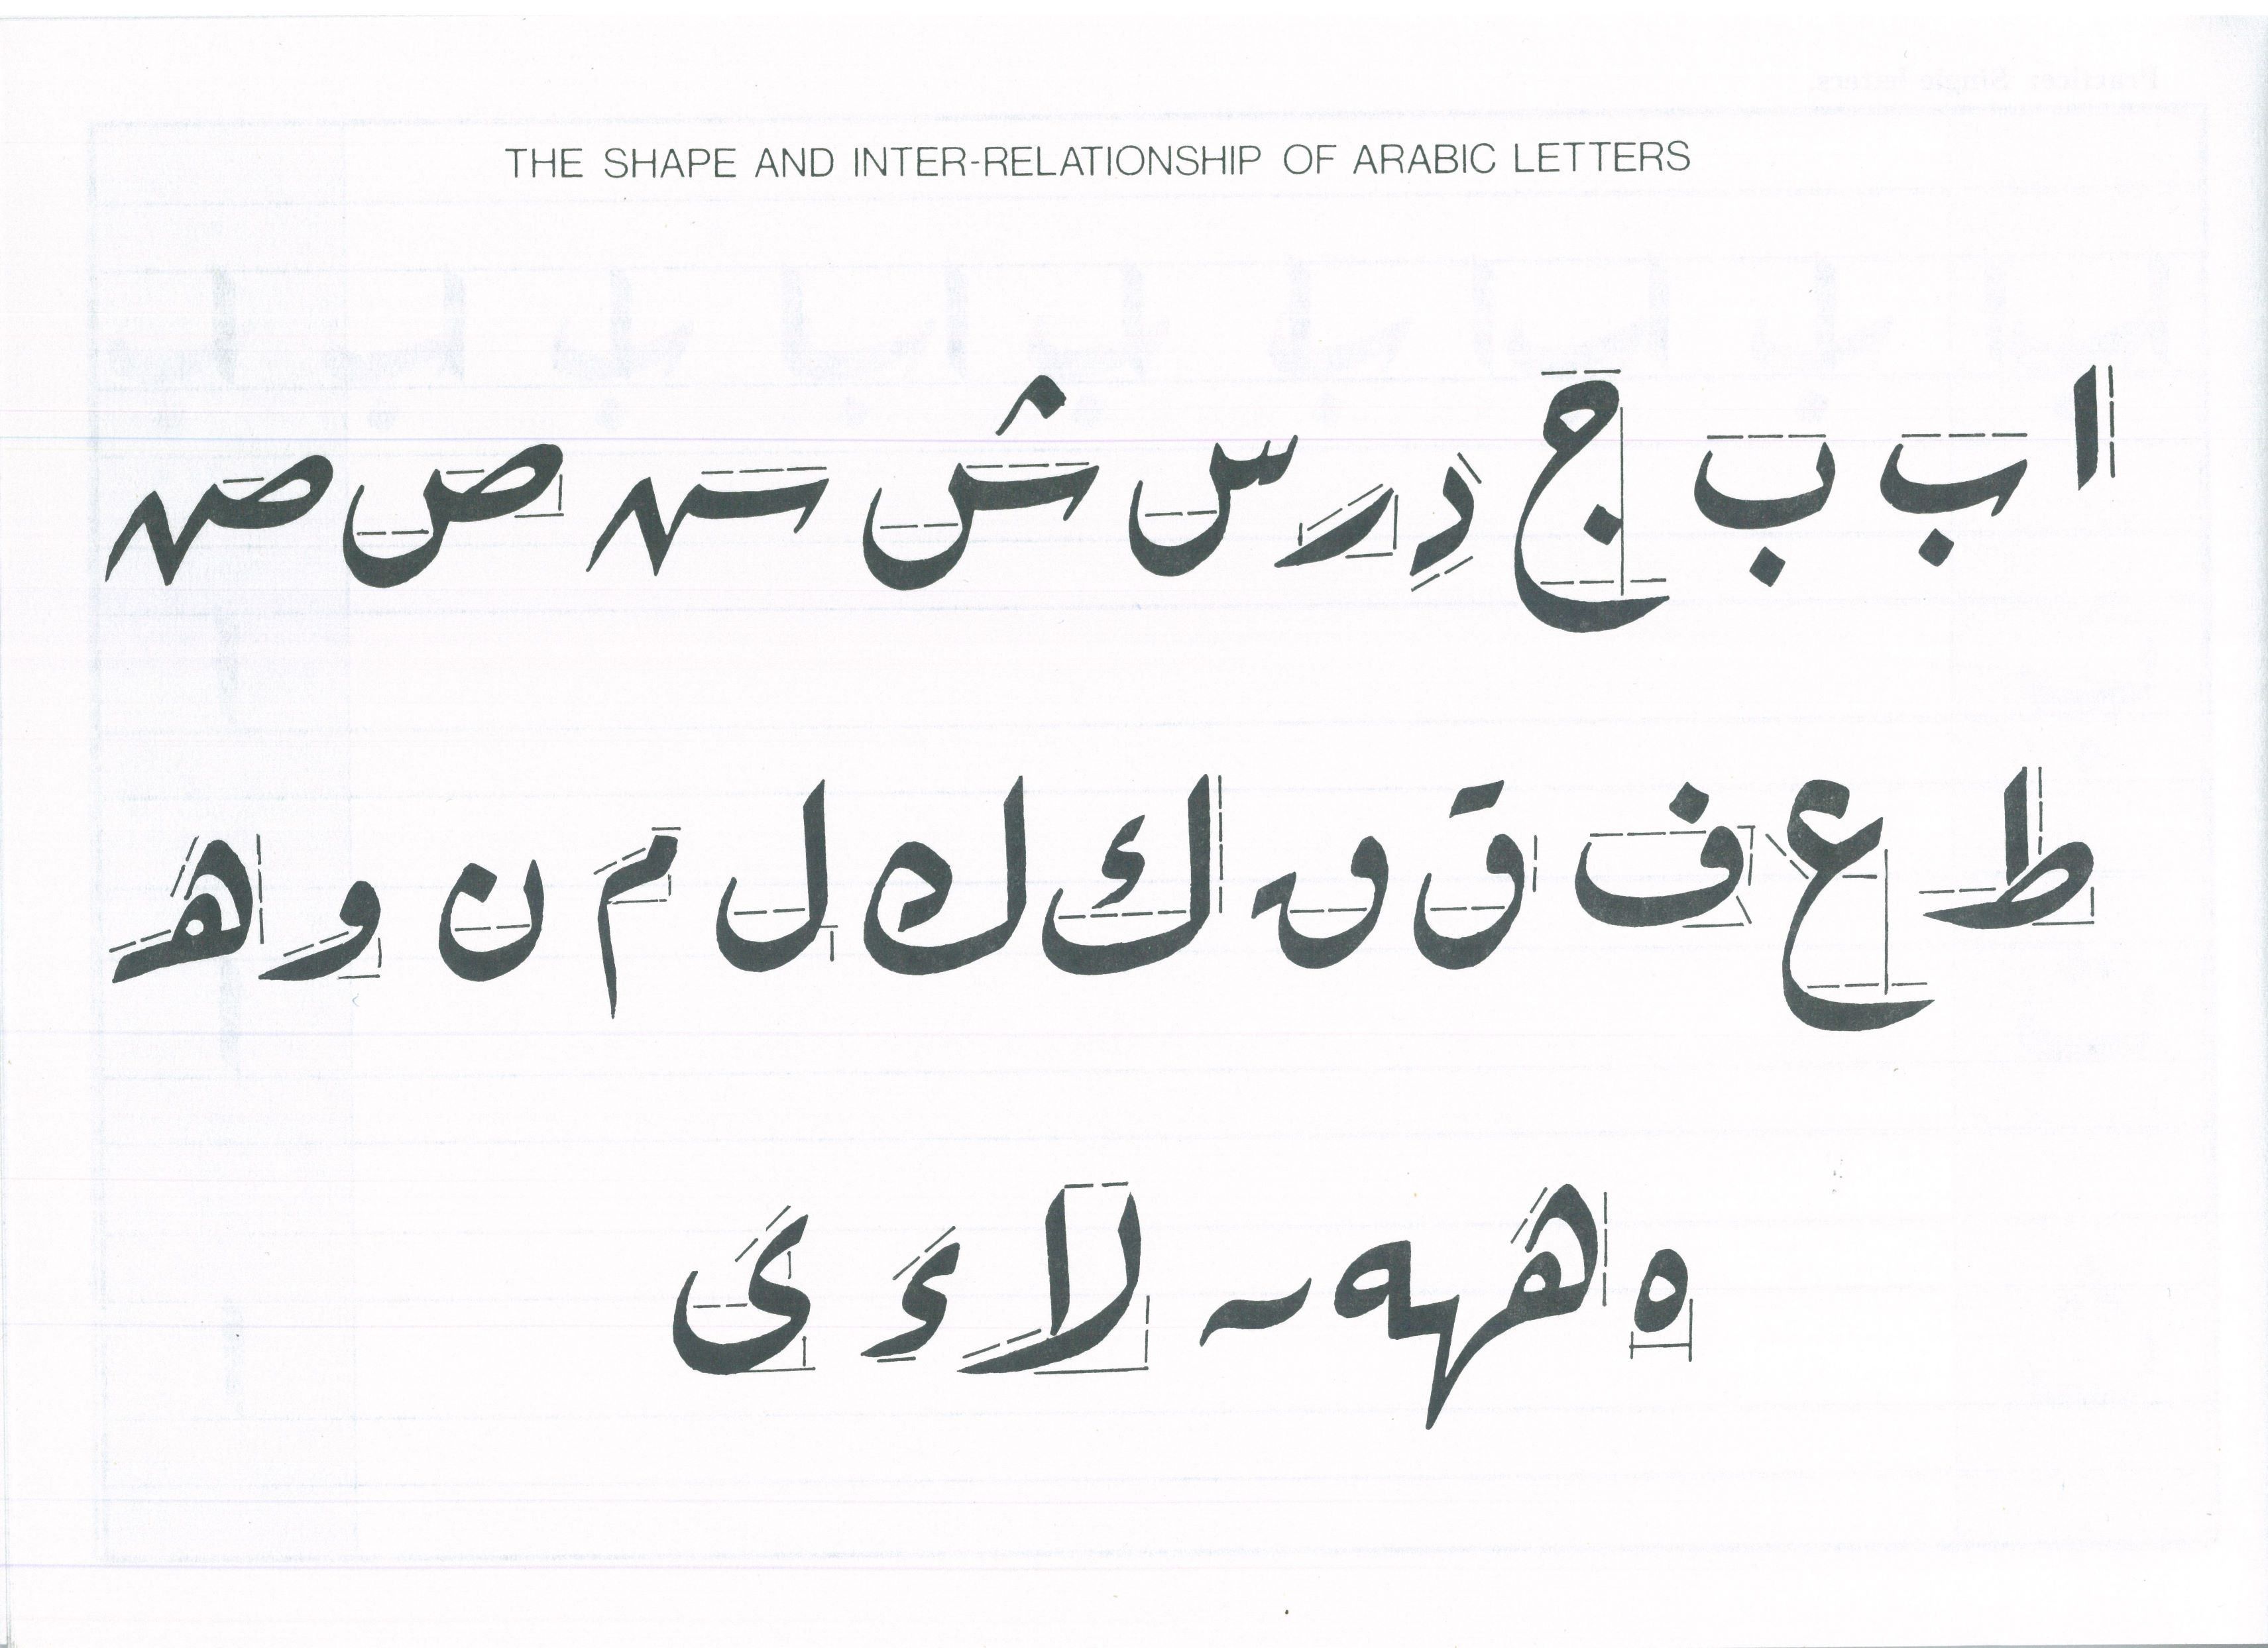 THE SHAPE AND INTER-RELATIONSHIP OF ARABIC LETTERS
ا ب ب ج د ر س ش س ص ص
ط ع ف ق ق ك ك ل م ن و ه
ه ه ه لا ء ى